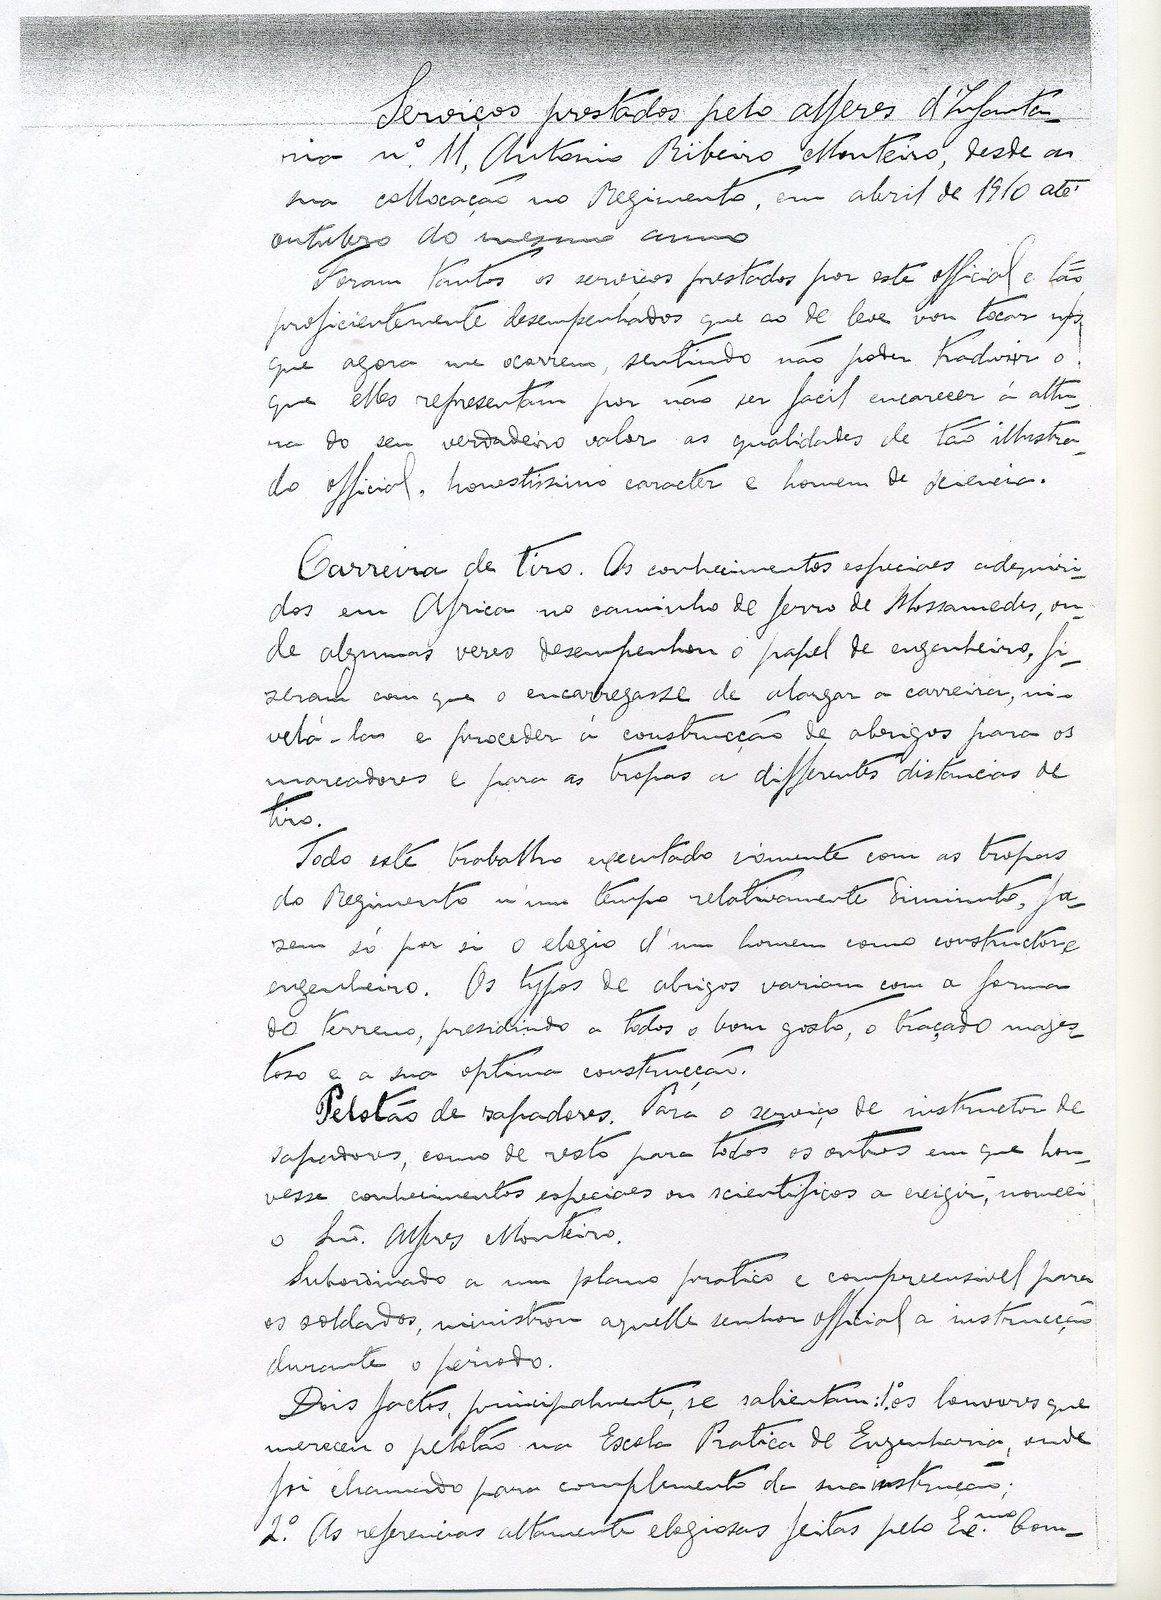 Serviços prestados pelo alferes d'Infanta-
ria nº. 11, Antonio Ribeiro Monteiro, desde a
sua collocação no Regimento, em abril de 1910 até
outubro do mesmo anno
Foram tantos os serviços prestados por este official e tão
proficientemente desempenhados que ao de leve vou tocar nos
que agora me ocorrem, sentindo não poder traduzir o
que elles representam por não ser facil encarecer á altu-
ra do seu verdadeiro valor as qualidades de tão illustra-
do official, honestissimo caracter e homem de sciencia.
Carreira de tiro. Os conhecimentos especiaes adequiri-
dos em Africa no caminho de ferro de Mossamedes, on-
de algumas veses desempenhou o papel de engenheiro, fi-
seram com que o encarregasse de alargar a carreira, ni-
velá-la e proceder á construcção de abrigos para os
marcadores e para as tropas a differentes distancias de
tiro.
Todo este trabalho executado sómente com as tropas
do Regimento n'um tempo relativamente diminuto, fa-
sem só por si o elogio d'um homem como constructor e
engenheiro. Os typos de abrigos variam com a forma
do terreno, presidindo a todos o bom gosto, o traçado mages-
toso e a sua optima construcção.
Pelotão de sapadores. Para o serviço de instructor de
sapadores, como de resto para todos os outros em que hou-
vesse conhecimentos especiaes ou scientificos a exigir, nomeei
o Snr. Alferes Monteiro.
Subordinado a um plano pratico e comprensivel para
os soldados, ministrou aquelle senhor official a instrucção
durante o periodo.
Dois factos, principalmente, se salientam: 1.º os louvores que
mereceu o pelotão na Escola Pratica de Engenharia, onde
foi chamado para complemento da sua instrucção;
2.º As referencias altamente elogiosas feitas pelo Ex.mo Com-